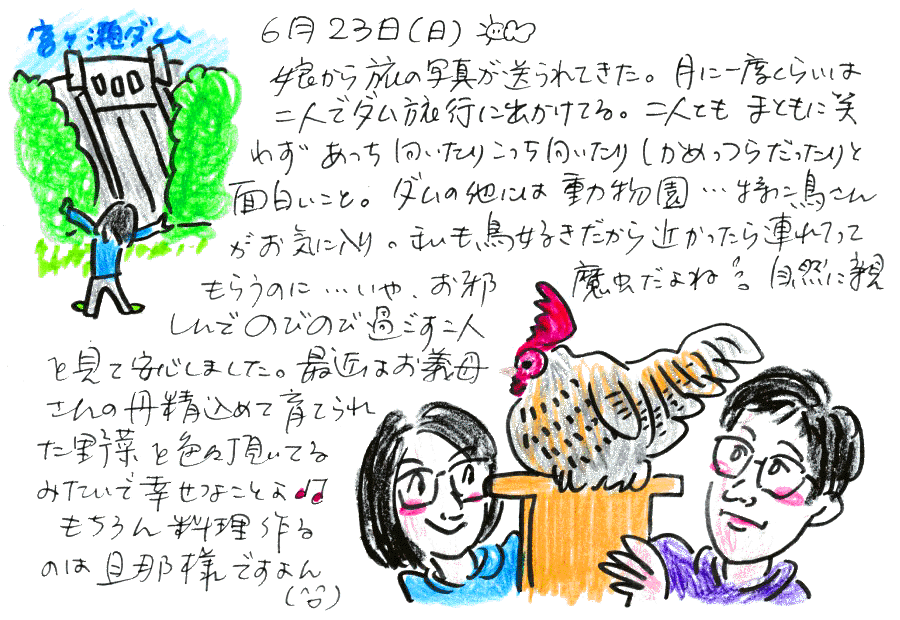 宮ヶ瀬ダム
6月23日(日)
娘から旅の写真が送られてきた。月に一度くらいは
二人でダム旅行に出かけてる。二人とも まともに笑
わず あっち向いたりこっち向いたりしかめっつらだったりと
面白いこと。ダムの他には動物園…特に鳥さん
がお気に入り。私も鳥好きだから近かったら連れてって
もらうのに…いや、お邪魔虫だよね。自然に親
しんでのびのび過ごす二人
を見て安心しました。最近はお義母
さんの丹精込めて育てられ
た野菜を色々頂いてる
みたいで幸せなことよ♫
もちろん料理作る
のは旦那様ですよん
(^o^)